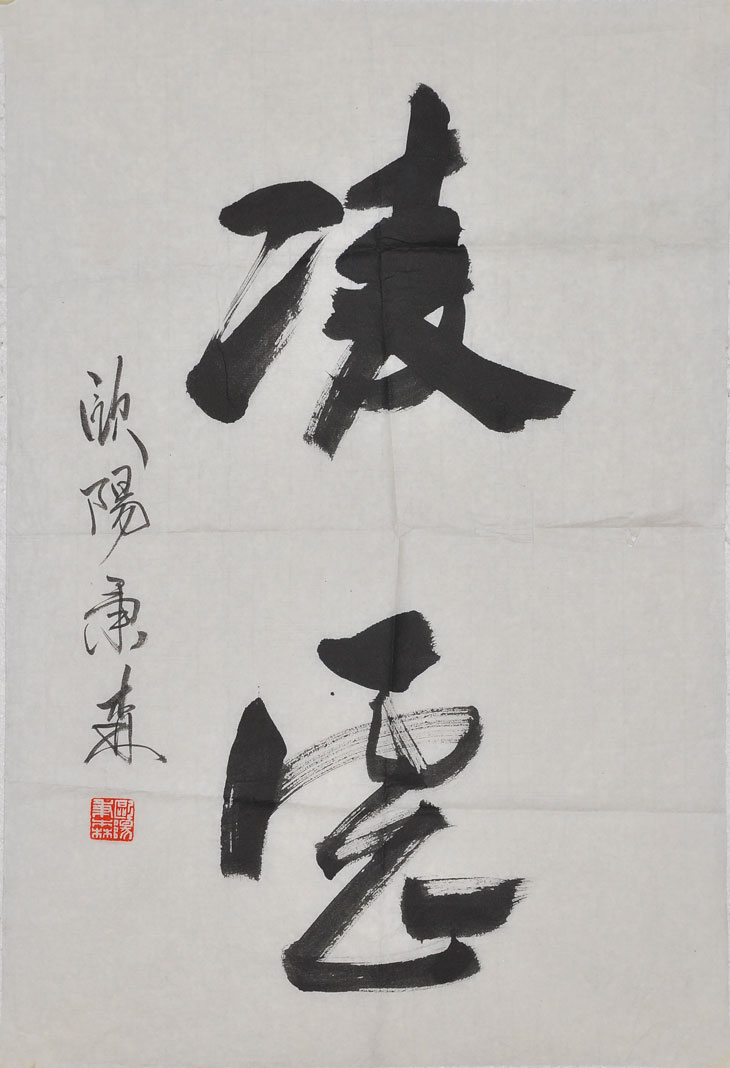 凌雲
歐陽秉森
歐陽
秉森